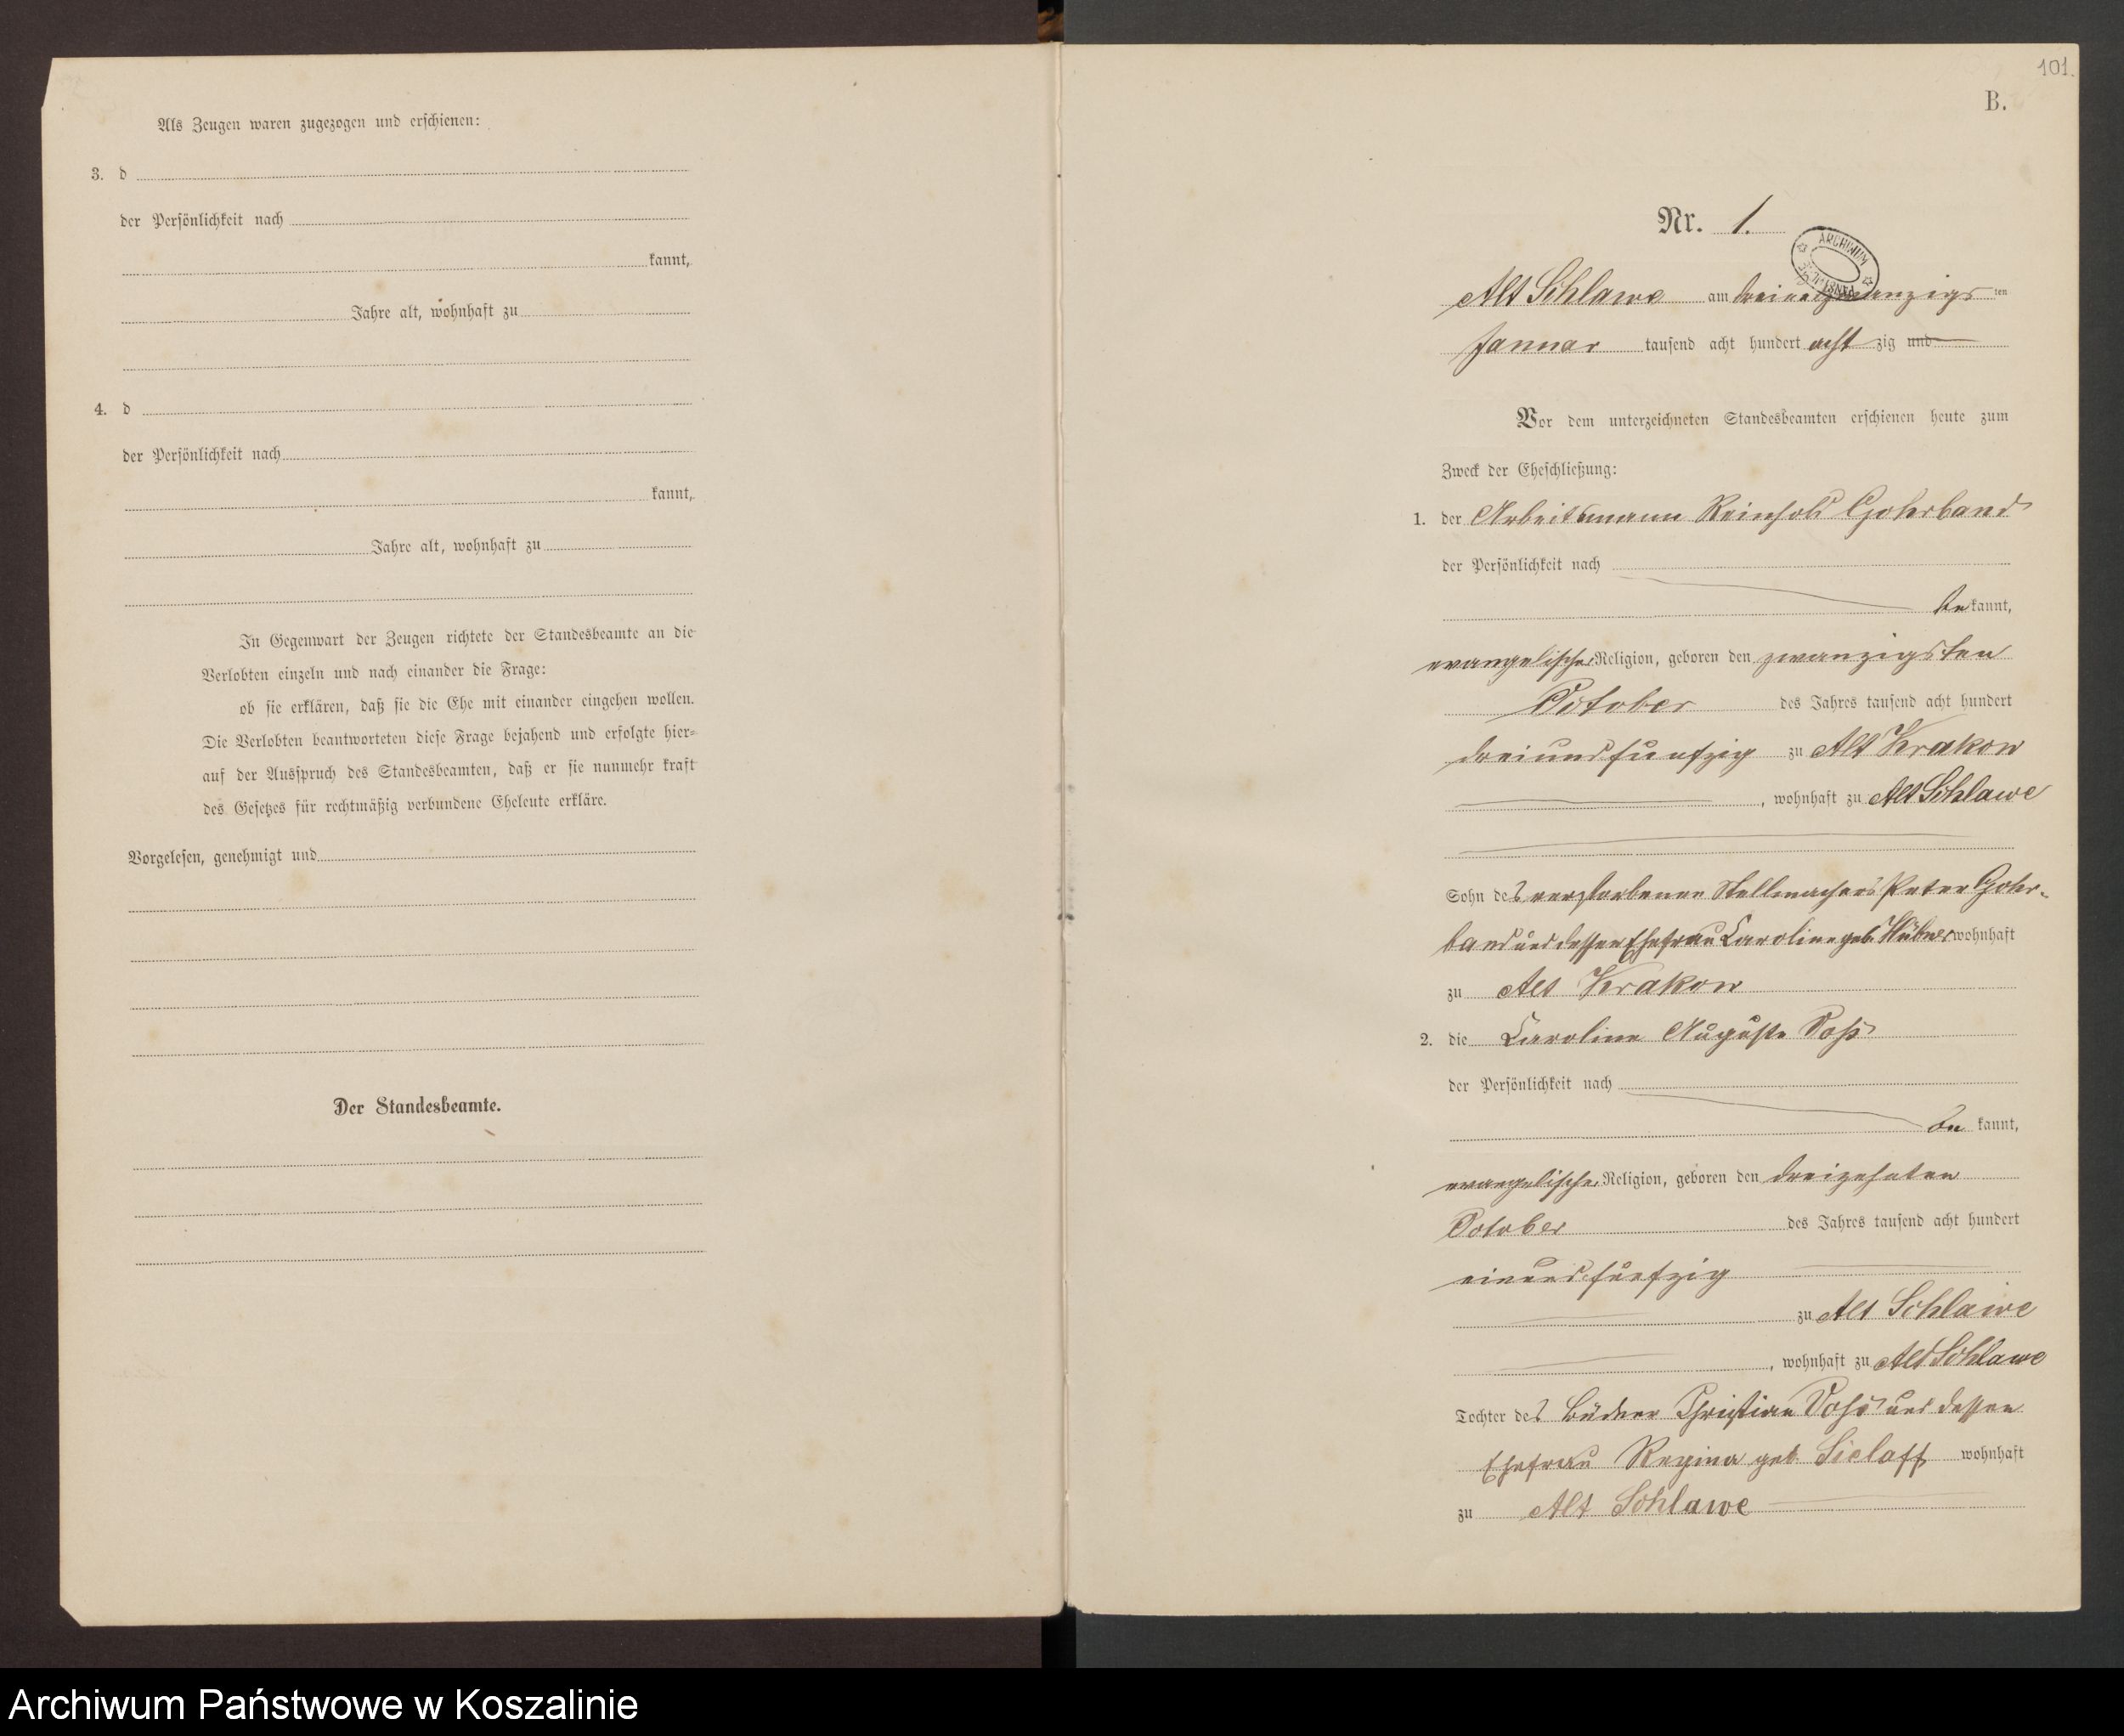 Als Zeugen waren zugezogen und erschienen:
3. d
der Persönlichkeit nach
kannt,
Jahre alt, wohnhaft zu
4. d
der Persönlichkeit nach
kannt,
Jahre alt, wohnhaft zu
In Gegenwart der Zeugen richtete der Standesbeamte an die
Verlobten einzeln und nach einander die Frage:
ob sie erklären, daß sie die Ehe mit einander eingehen wollen.
Die Verlobten beantworteten diese Frage bejahend und erfolgte hier=
auf der Ausspruch des Standesbeamten, daß er sie nunmehr kraft
des Gesetzes für rechtmäßig verbundene Eheleute erkläre.
Vorgelesen, genehmigt und
Der Standesbeamte.
101.
B.
Nr. 1.
ARCHIWUM
Alt Schlawe am dreiundzwanzigsten
Januar tausend acht hundert achtzig und
Vor dem unterzeichneten Standesbeamten erschienen heute zum
Zweck der Eheschließung:
1. der Arbeitsmann Reinhold Gohrband
der Persönlichkeit nach
bekannt,
evangelischer Religion, geboren den zwanzigsten
October des Jahres tausend acht hundert
dreiundfünfzig zu Alt Krakow
, wohnhaft zu Alt Schlawe
Sohn des verstorbenen Stellmachers Peter Gohr-
band und dessen Ehefrau Caroline geb. Hübner wohnhaft
zu Alt Krakow
2. die Caroline Auguste Voß
der Persönlichkeit nach
bekannt,
evangelischer Religion, geboren den dreizehnten
October des Jahres tausend acht hundert
einundfünfzig
zu Alt Schlawe
, wohnhaft zu Alt Schlawe
Tochter des Büdner Christian Voß und dessen
Ehefrau Regina geb. Sielaff wohnhaft
zu Alt Schlawe
Archiwum Państwowe w Koszalinie